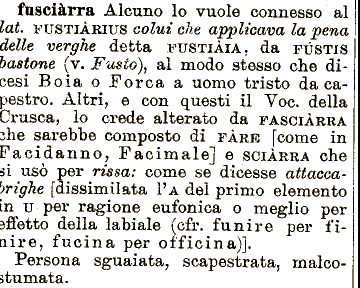 fusciàrra Alcuno lo vuole connesso al
lat. FUSTIÀRIUS colui che applicava la pena
delle verghe detta FUSTIÀIA, da FÚSTIS
bastone (v. Fusto), al modo stesso che di-
cesi Boia o Forca a uomo tristo da ca-
pestro. Altri, e con questi il Voc. della
Crusca, lo crede alterato da FASCIÀRRA
che sarebbe composto di FÀRE [come in
Facidanno, Facimale] e SCIÀRRA che
si usò per rissa: come se dicesse attacca-
brighe [dissimilata l'A del primo elemento
in U per ragione eufonica o meglio per
effetto della labiale (cfr. funire per fi-
nire, fucina per officina)].
Persona sguaiata, scapestrata, malco-
stumata.